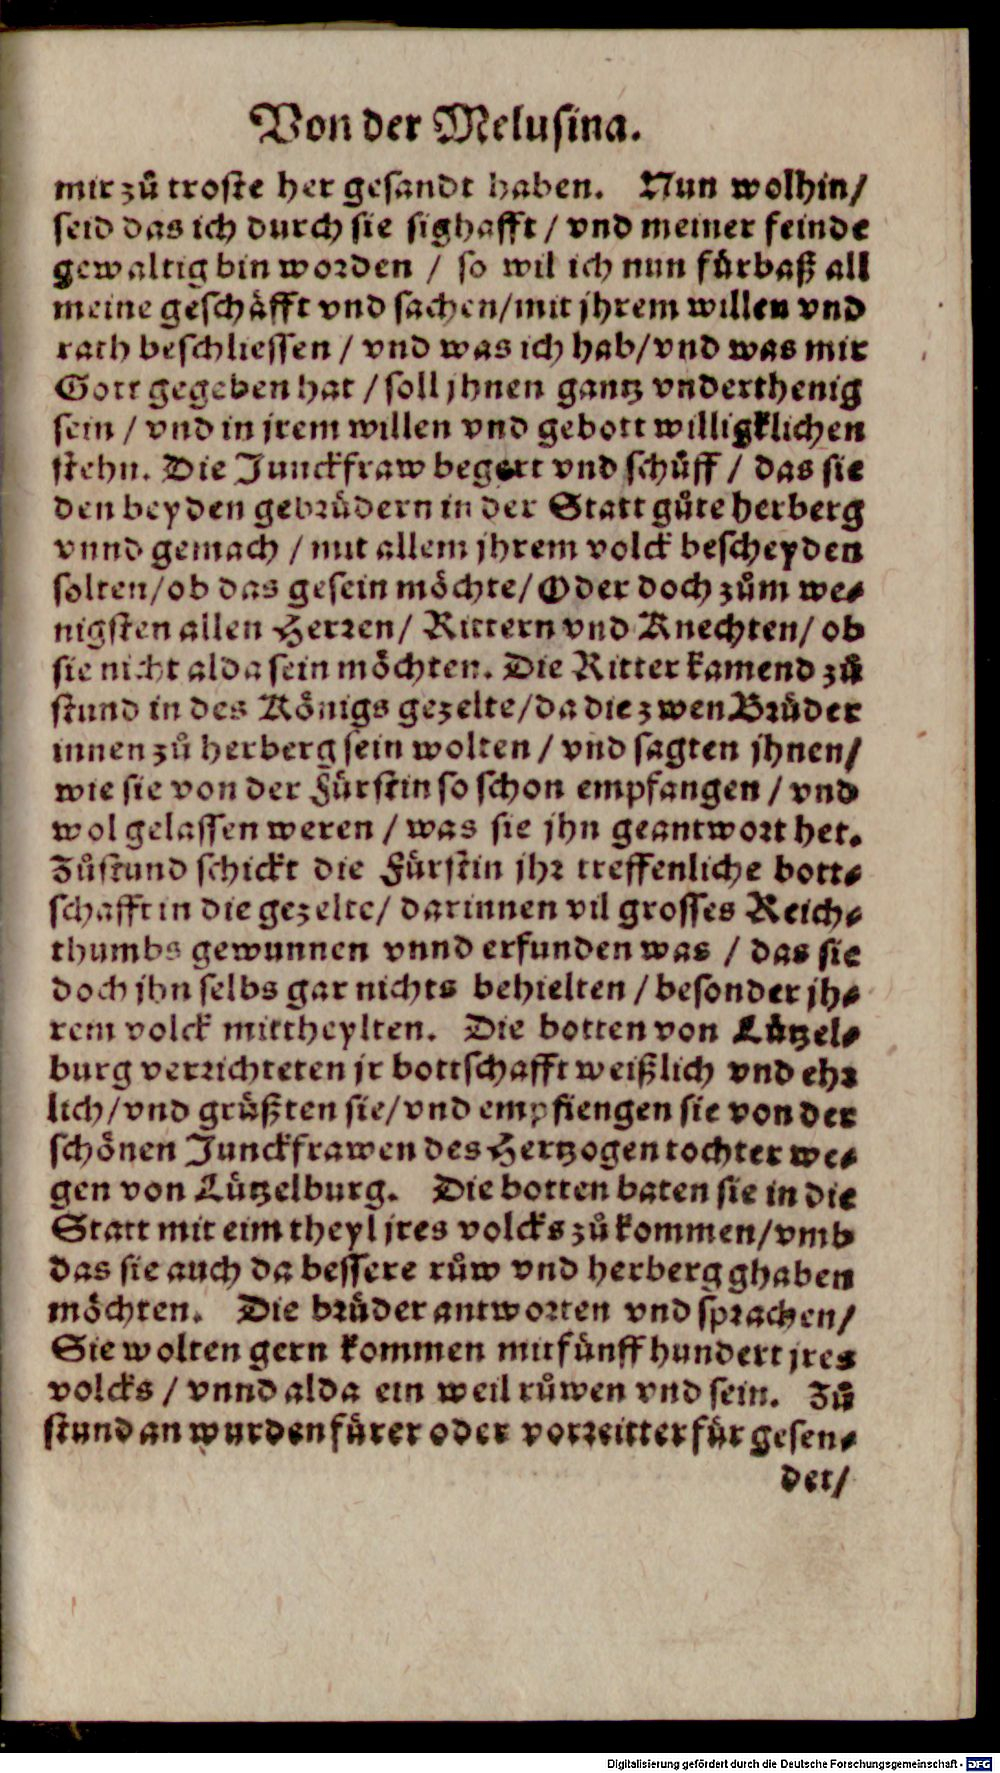 Von der Melusina.
mir zů troste her gesandt haben. Nun wolhin/
seid das ich durch sie sighafft / vnd meiner feinde
gewaltig bin worden / so wil ich nun fürbaß all
meine geschäfft vnd sachen/mit jhrem willen vnd
rath beschliessen / vnd was ich hab/vnd was mir
Gott gegeben hat / soll jhnen gantz vnderthenig
sein / vnd in jrem willen vnd gebott willigklichen
stehn. Die Junckfraw begert vnd schůff / das sie
den beyden gebrüdern in der Statt gůte herberg
vnnd gemach / mit allem jhrem volck bescheyden
solten/ob das gesein möchte/Oder doch zům we-
nigsten allen Herren/ Rittern vnd Knechten/ ob
sie nicht alda sein möchten. Die Ritter kamend zů
stund in des Königs gezelte/da die zwen Brüder
innen zů herberg sein wolten / vnd sagten jhnen/
wie sie von der Fürstin so schon empfangen / vnd
wol gelassen weren / was sie jhn geantwort het.
Zůstund schickt die Fürstin jhr treffenliche bott-
schafft in die gezelte/ darinnen vil grosses Reich-
thumbs gewunnen vnnd erfunden was / das sie
doch jhn selbs gar nichts behielten / besonder jh-
rem volck mittheylten. Die botten von Lützel-
burg verrichteten jr bottschafft weißlich vnd ehr
lich/vnd grüßten sie/vnd empfiengen sie von der
schönen Junckfrawen des Hertzogen tochter we-
gen von Lützelburg. Die botten baten sie in die
Statt mit eim theyl jres volcks zů kommen/vmb
das sie auch da bessere růw vnd herberg ghaben
möchten. Die brüder antworten vnd sprachen/
Sie wolten gern kommen mit fünff hundert jres
volcks / vnnd alda ein weil růwen vnd sein. Zů
stund an wurden fürer oder vorreitter für gesen-
det/
Digitalisierung gefördert durch die Deutsche Forschungsgemeinschaft - DFG